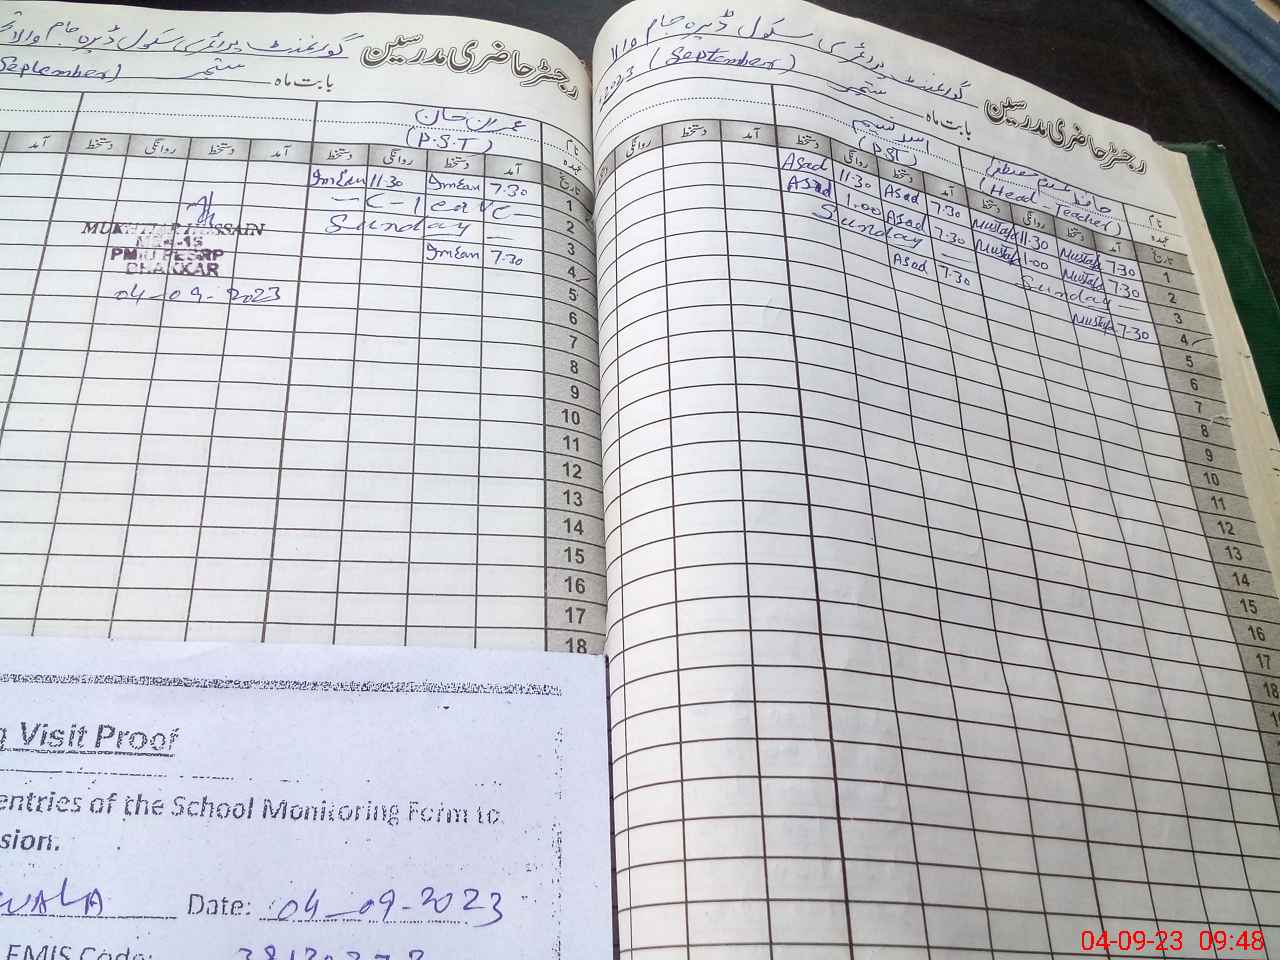 رجسٹر حاضری مدرسین گورنمنٹ پرائمری سکول ڈیرہ جام والا
بابت ماہ ستمبر (September) 2023
نام
(Head-Teacher)
اسد نسیم
(PST)
عہدہ
تاریخ آمد دستخط روانگی دستخط آمد دستخط روانگی دستخط آمد دستخط روانگی
1 7-30 Mustafa 11-30 Mustafa 7-30 Asad 11-30 Asad
2 7-30 Mustafa 1-00 Mustafa 7-30 Asad 1.00 Asad
3 Sunday — Sunday —
4 7-30 Mustafa 7-30 Asad
5
6
7
8
9
10
11
12
13
14
15
16
17
18
رجسٹر حاضری مدرسین گورنمنٹ پرائمری سکول ڈیرہ جام والا
بابت ماہ ستمبر (September)
نام عمران خان
عہدہ (P.S.T)
تاریخ آمد دستخط روانگی دستخط آمد دستخط روانگی دستخط آمد
1 7-30 Imran 11-30 Imran
2 — C - leave —
3 Sunday —
4 7-30 Imran
5
6
7
8
9
10
11
12
13
14
15
16
17
18
MUKHTIAR HUSSAIN
BHAKKAR
04-09-2023
Visit Proof
entries of the School Monitoring Form to
sion.
WALA Date: 04-09-2023
EMIS Code:
04-09-23 09:48